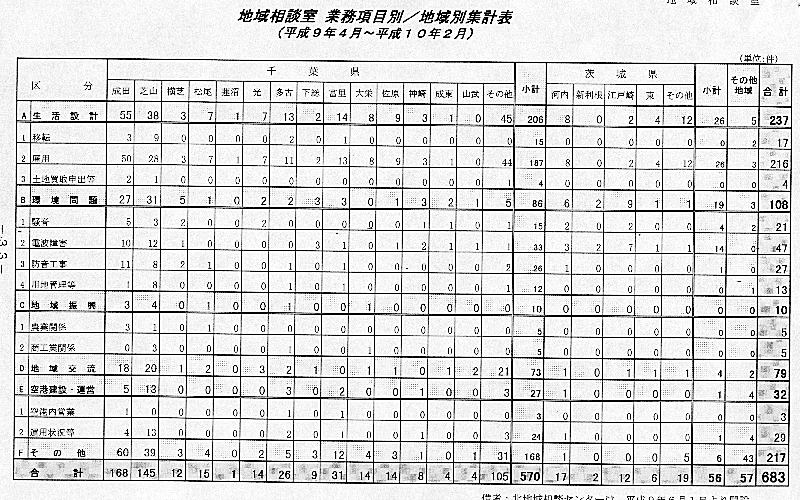 地域相談室
地域相談室 業務項目別/地域別集計表
(平成9年4月~平成10年2月)
(単位:件)
千葉県 茨城県
区分 成田 芝山 横芝 松尾 蓮沼 光 多古 下総 富里 大栄 佐原 神崎 成東 山武 その他 小計 河内 新利根 江戸崎 東 その他 小計 その他地域 合計
A 生活設計 55 38 3 7 1 7 13 2 14 8 9 3 1 0 45 206 8 0 2 4 12 26 5 237
1 移転 3 9 0 0 0 0 2 0 1 0 0 0 0 0 0 15 0 0 0 0 0 0 2 17
2 雇用 50 28 3 7 1 7 11 2 13 8 9 3 1 0 44 187 8 0 2 4 12 26 3 216
3 土地買取申出等 2 1 0 0 0 0 0 0 0 0 0 0 0 0 1 4 0 0 0 0 0 0 0 4
B 環境問題 27 31 5 1 0 2 2 3 3 0 1 3 2 1 5 86 6 2 9 1 1 19 3 108
1 騒音 5 3 2 0 0 2 0 0 0 0 0 1 0 1 15 2 0 2 0 0 4 2 21
2 電波障害 10 12 1 0 0 0 0 3 1 0 1 2 1 1 1 33 3 2 7 1 1 14 0 47
3 防音工事 11 8 2 1 0 0 1 0 1 0 0 0 0 2 26 1 0 0 0 0 1 0 27
4 用地管理等 1 8 0 0 0 0 1 0 1 0 0 0 0 0 1 12 0 0 0 0 0 0 1 13
C 地域振興 3 4 0 1 0 0 1 0 0 1 0 0 0 0 0 10 0 0 0 0 0 0 0 10
1 農業関係 3 1 0 1 0 0 0 0 0 0 0 0 0 0 0 5 0 0 0 0 0 0 0 5
2 商工業関係 0 3 0 0 0 0 1 0 0 1 0 0 0 0 0 5 0 0 0 0 0 0 0 5
D 地域交流 18 20 1 2 0 3 2 1 0 1 1 0 1 2 21 73 1 0 1 1 1 4 2 79
E 空港建設・運営 5 13 0 0 0 0 3 0 2 0 0 1 0 0 3 27 1 0 0 0 0 1 4 32
1 空港内営業 1 0 0 0 0 0 1 0 1 0 0 0 0 0 0 3 0 0 0 0 0 0 0 3
2 運用状況等 4 13 0 0 0 0 2 0 1 0 0 1 0 0 3 24 1 0 0 0 0 1 4 29
F その他 60 39 3 4 0 2 5 3 12 4 3 1 0 1 31 168 1 0 0 0 5 6 43 217
合計 168 145 12 15 1 14 26 9 31 14 14 8 4 4 105 570 17 2 12 6 19 56 57 683
-33-